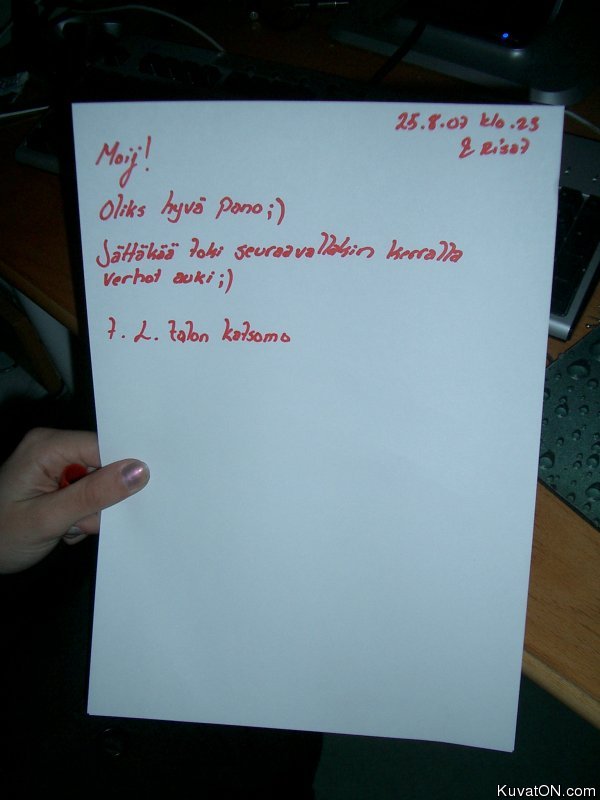 25.8.07 klo.23
Moij!
Oliks hyvä pano ;)
Jättäkää toki seuraavallakin kerralla
verhot auki ;)
T. L. talon katsomo
KuvatON.com